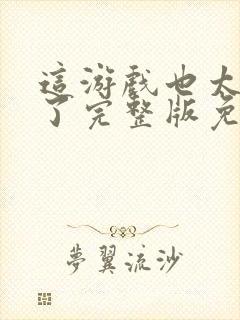 這游戲也太
了完整版免
夢翼流沙